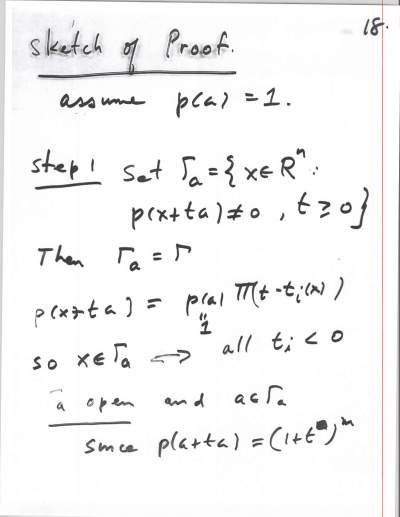 18.
Sketch of Proof.
assume p(a) = 1.
step 1 Set Γₐ = { x ∈ Rⁿ :
p(x+ta) ≠ 0 , t ≥ 0 }
Then Γₐ = Γ
p(x+ta) = p(a) Π(t - tᵢ(x))
"
1
so x ∈ Γₐ ⟺ all tᵢ < 0
a open and a ∈ Γₐ
since p(a+ta) = (1+t)ᵐ